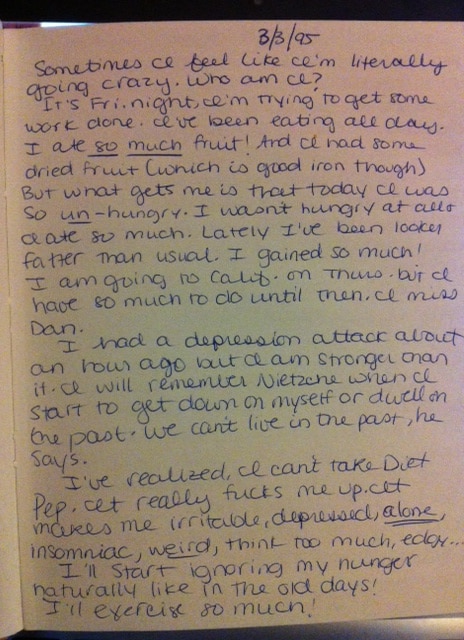 3/3/95
Sometimes I feel like I'm literally
going crazy. Who am I?
It's Fri. night, I'm trying to get some
work done. I've been eating all day.
I ate so much fruit! And I had some
dried fruit (which is good iron though)
But what gets me is that today I was
so un-hungry. I wasn't hungry at all &
I ate so much. Lately I've been looking
fatter than usual. I gained so much!
I am going to Calif. on Thurs. but I
have so much to do until then. I miss
Dan.
I had a depression attack about
an hour ago but I am stronger than
it. I will remember Nietzche when I
start to get down on myself or dwell on
the past. We can't live in the past, he
says.
I've realized, I can't take Diet
Pep. It really fucks me up. It
makes me irritable, depressed, alone,
insomniac, weird, think too much, edgy...
I'll start ignoring my hunger
naturally like in the old days!
I'll exercise so much!